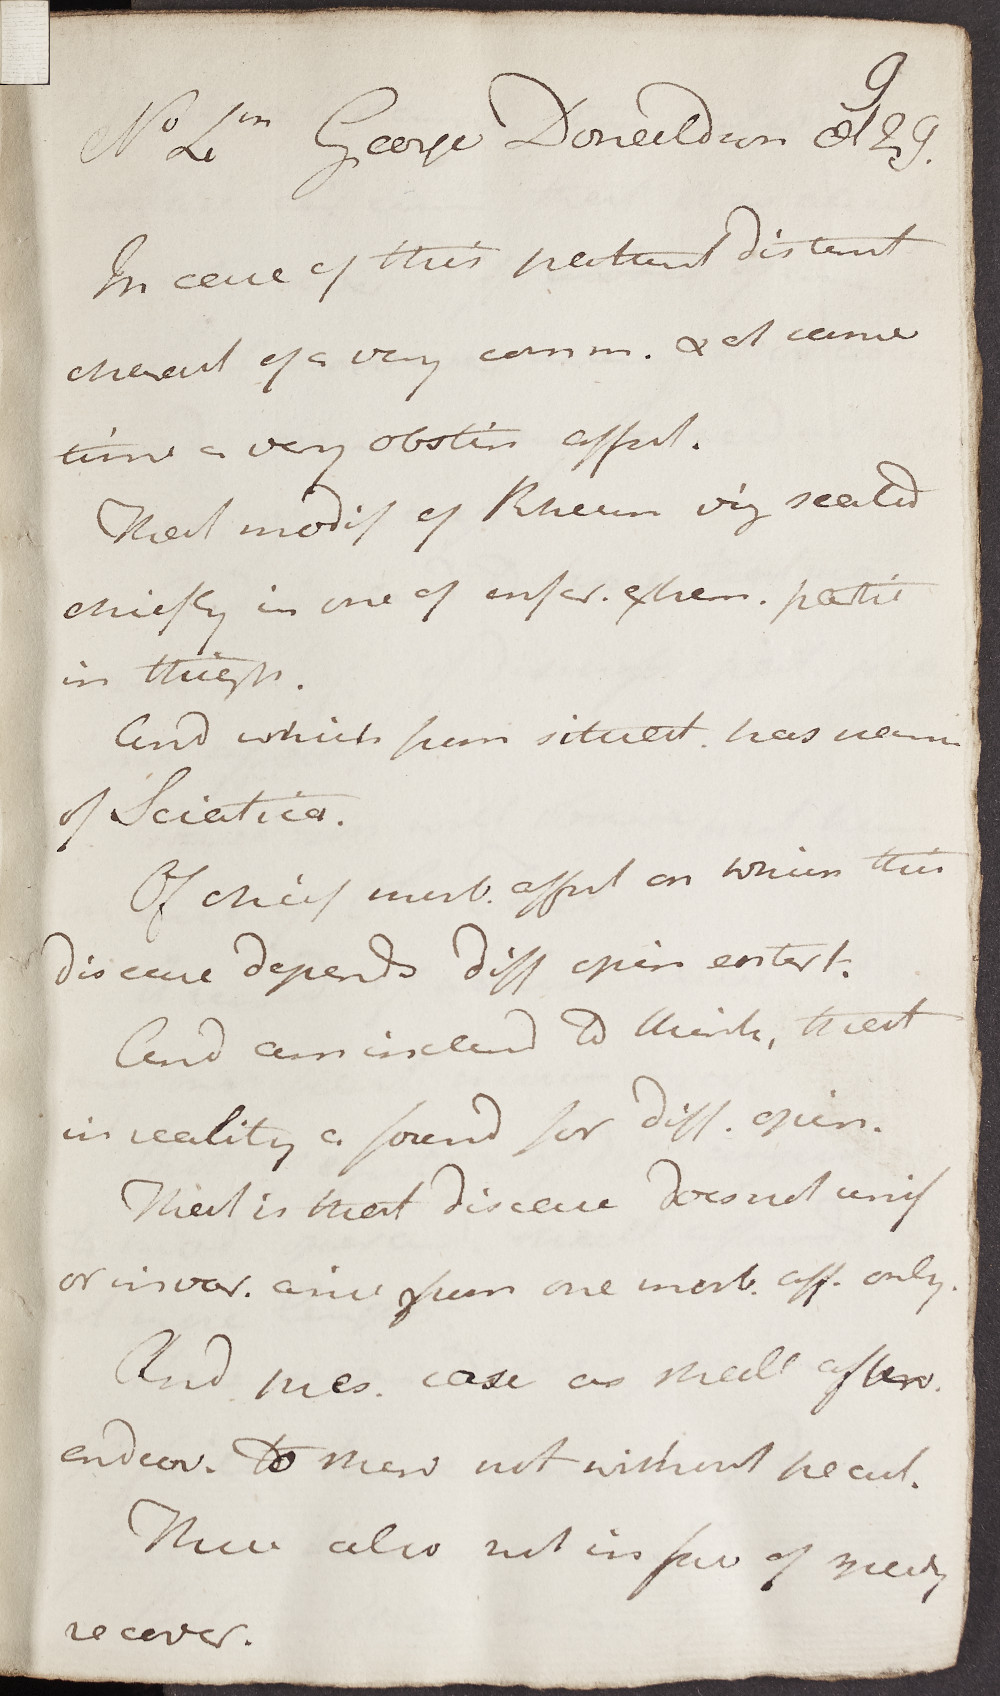 9
No 4m George Donaldson æt 29.
In case of this patient distinct
charact of a very comm. & at same
time a very obstin affect.
That modif of Rheum viz seated
chiefly in one of infer. extrem. partic
in thigh.
And which from situat. has name
of Sciatica.
Of chief morb. affect on which this
disease depends diff opin entert.
And am inclend to think, that
in reality a found for diff. opin.
That is that disease does not unif
or invar. arise from one morb. aff. only.
And pres. case as shall after.
endeav. to shew not without pecul.
These also not in fav of speedy
recover.